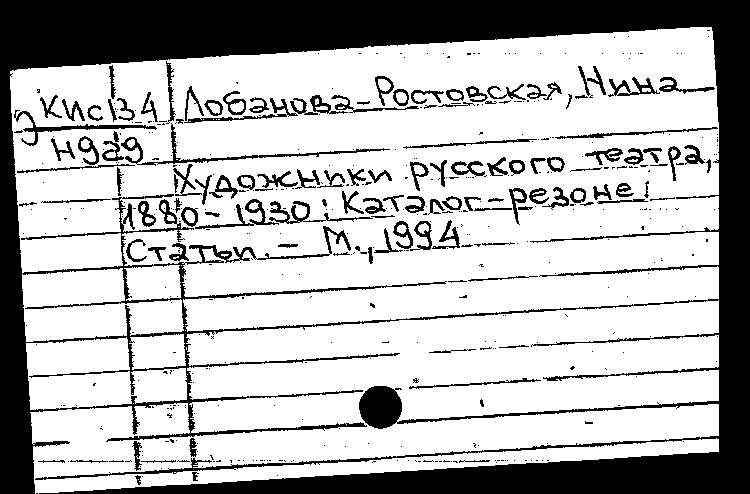 КИс134 Лобанова-Ростовская, Нина
Художники русского театра,
1880-1930: Каталог-резоне;
Статьи. - М., 1994